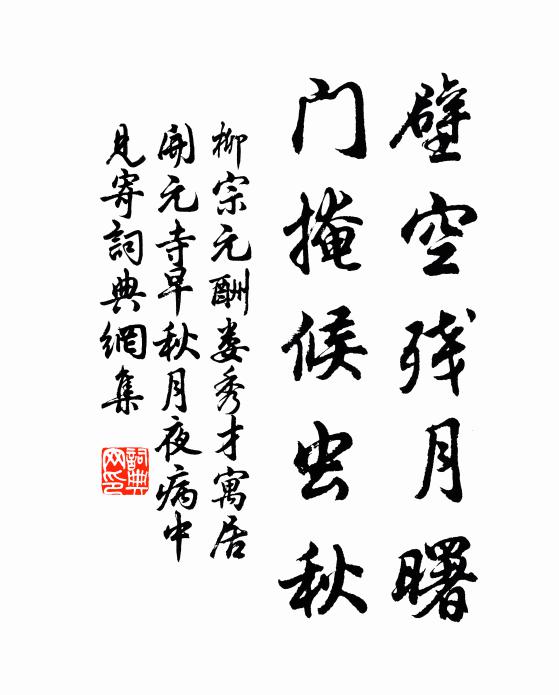 壁空残月曙
门掩候虫秋
柳宗元酬娄秀才寓居
開元寺早秋月夜病中
見寄詞典網集
詞典
网印